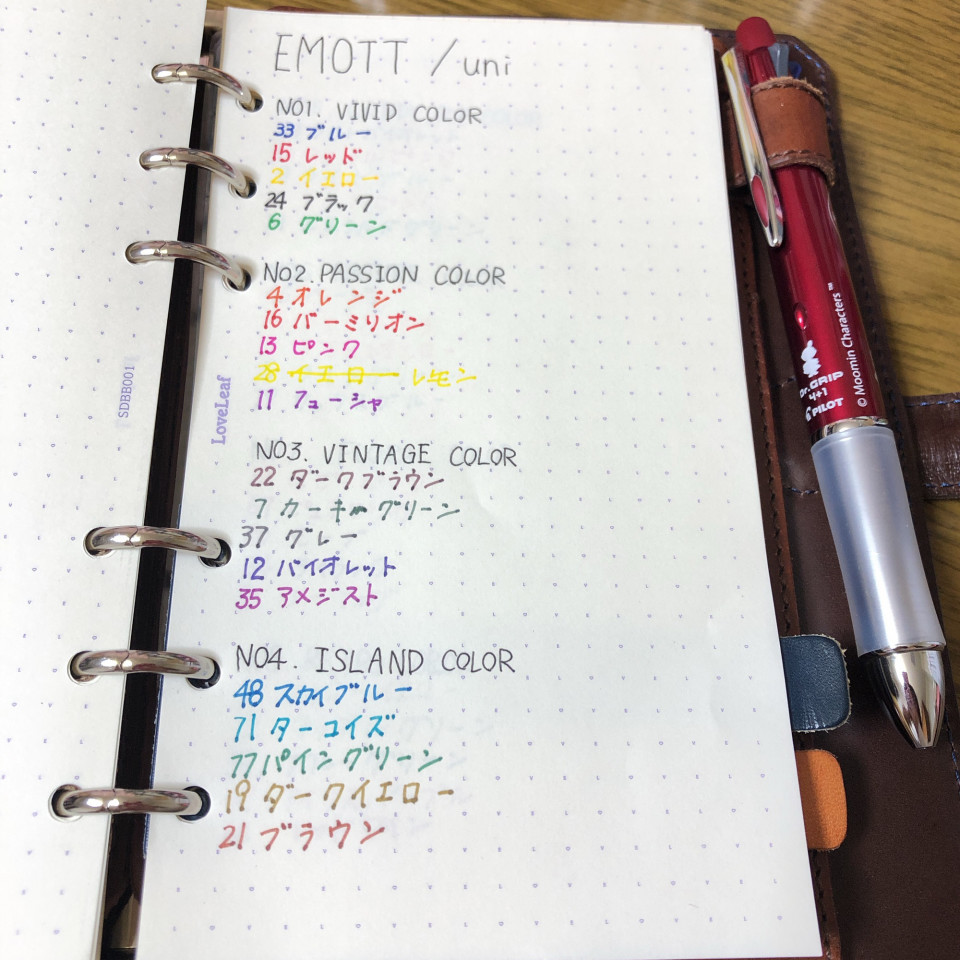 EMOTT / uni
NO1. VIVID COLOR
33 ブルー
15 レッド
2 イエロー
24 ブラック
6 グリーン
NO2. PASSION COLOR
4 オレンジ
16 バーミリオン
13 ピンク
28 イエロー レモン
11 フューシャ
NO3. VINTAGE COLOR
22 ダークブラウン
7 カーキーグリーン
37 グレー
12 バイオレット
35 アメジスト
NO4. ISLAND COLOR
48 スカイブルー
71 ターコイズ
77 パイングリーン
19 ダークイエロー
21 ブラウン
SDBB001
LoveLeaf
Dr.GRIP
4+1
PILOT
© Moomin Characters™